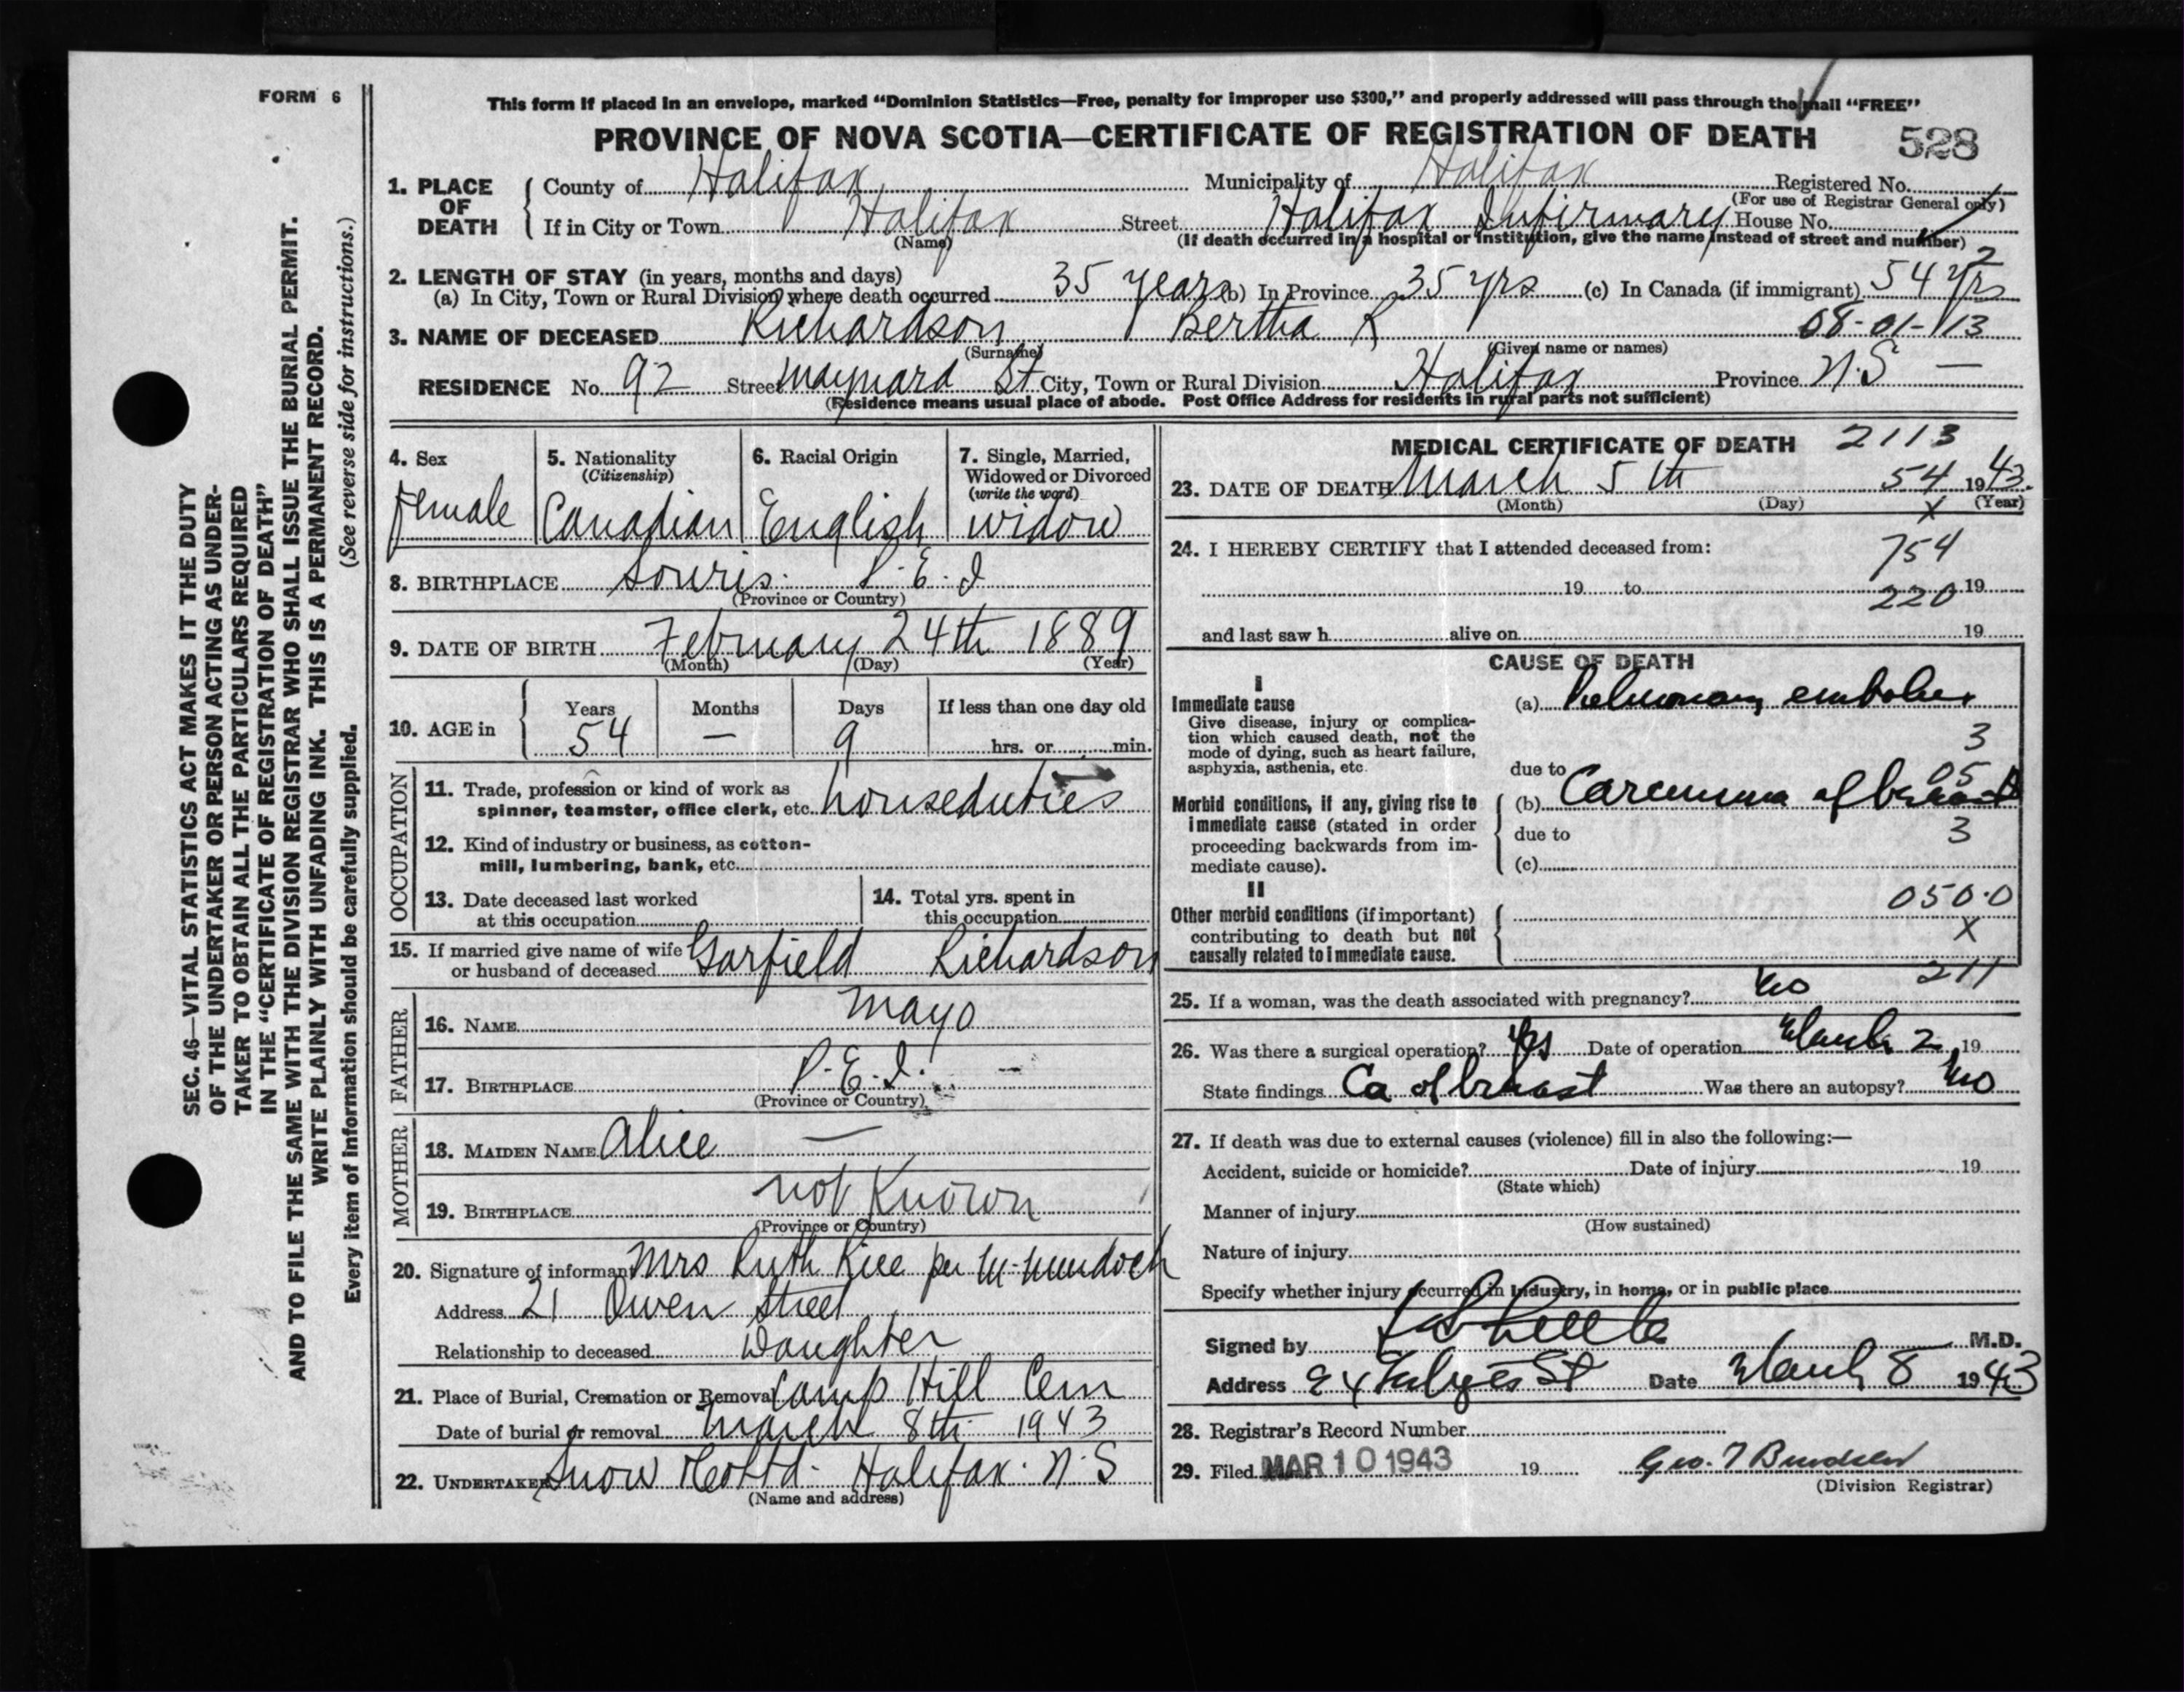 FORM 6
This form if placed in an envelope, marked "Dominion Statistics—Free, penalty for improper use $300," and properly addressed will pass through the mail "FREE"
PROVINCE OF NOVA SCOTIA—CERTIFICATE OF REGISTRATION OF DEATH
528
SEC. 46—VITAL STATISTICS ACT MAKES IT THE DUTY
OF THE UNDERTAKER OR PERSON ACTING AS UNDER-
TAKER TO OBTAIN ALL THE PARTICULARS REQUIRED
IN THE "CERTIFICATE OF REGISTRATION OF DEATH"
AND TO FILE THE SAME WITH THE DIVISION REGISTRAR WHO SHALL ISSUE THE BURIAL PERMIT.
WRITE PLAINLY WITH UNFADING INK. THIS IS A PERMANENT RECORD.
Every item of information should be carefully supplied. (See reverse side for instructions.)
1. PLACE OF DEATH County of Halifax Municipality of Halifax Registered No.
(For use of Registrar General only)
If in City or Town Halifax Street Halifax Infirmary House No.
(Name) (If death occurred in a hospital or institution, give the name instead of street and number)
2. LENGTH OF STAY (in years, months and days) 2
(a) In City, Town or Rural Division where death occurred 35 years (b) In Province 35 yrs (c) In Canada (if immigrant) 54 yrs
3. NAME OF DECEASED Richardson Bertha R 08-01-113
(Surname) (Given name or names)
RESIDENCE No. 92 Street Maynard St City, Town or Rural Division Halifax Province N.S —
(Residence means usual place of abode. Post Office Address for residents in rural parts not sufficient)
4. Sex
female
5. Nationality
(Citizenship)
Canadian
6. Racial Origin
English
7. Single, Married,
Widowed or Divorced
(write the word)
widow
8. BIRTHPLACE Souris. P.E.I
(Province or Country)
9. DATE OF BIRTH February 24th 1889
(Month) (Day) (Year)
10. AGE in Years Months Days If less than one day old
54 — 9 hrs. or min.
OCCUPATION
11. Trade, profession or kind of work as
spinner, teamster, office clerk, etc. houseduties
12. Kind of industry or business, as cotton-
mill, lumbering, bank, etc.
13. Date deceased last worked
at this occupation
14. Total yrs. spent in
this occupation
15. If married give name of wife
or husband of deceased Garfield Richardson
FATHER
16. NAME Mayo
17. BIRTHPLACE P.E.I. —
(Province or Country)
MOTHER
18. MAIDEN NAME Alice —
19. BIRTHPLACE not Known
(Province or Country)
20. Signature of informant Mrs Ruth Rice per
Address 21 Owen Street
Relationship to deceased Daughter
21. Place of Burial, Cremation or Removal Camp Hill Cem
Date of burial or removal March 8th 1943
22. UNDERTAKER Snow & Co Ltd. Halifax. N.S
(Name and address)
MEDICAL CERTIFICATE OF DEATH 2113
23. DATE OF DEATH March 5th 54 1943.
(Month) (Day) (Year)
X
24. I HEREBY CERTIFY that I attended deceased from: 754
19 to 220 19
and last saw h alive on 19
CAUSE OF DEATH
I
Immediate cause
Give disease, injury or complica-
tion which caused death, not the
mode of dying, such as heart failure,
asphyxia, asthenia, etc.
(a) Pulmonary embolus
3
due to
05
Morbid conditions, if any, giving rise to
immediate cause (stated in order
proceeding backwards from im-
mediate cause).
(b) Carcinoma of breast
due to 3
(c)
II
Other morbid conditions (if important)
contributing to death but not
causally related to immediate cause.
050.0
X
211
25. If a woman, was the death associated with pregnancy? No
26. Was there a surgical operation? yes Date of operation March 2 19
State findings Ca of breast Was there an autopsy? No
27. If death was due to external causes (violence) fill in also the following:—
Accident, suicide or homicide? Date of injury 19
(State which)
Manner of injury
(How sustained)
Nature of injury
Specify whether injury occurred in industry, in home, or in public place
Signed by M.D.
Address St Date March 8 1943
28. Registrar's Record Number
29. Filed MAR 10 1943 19 Geo.
(Division Registrar)